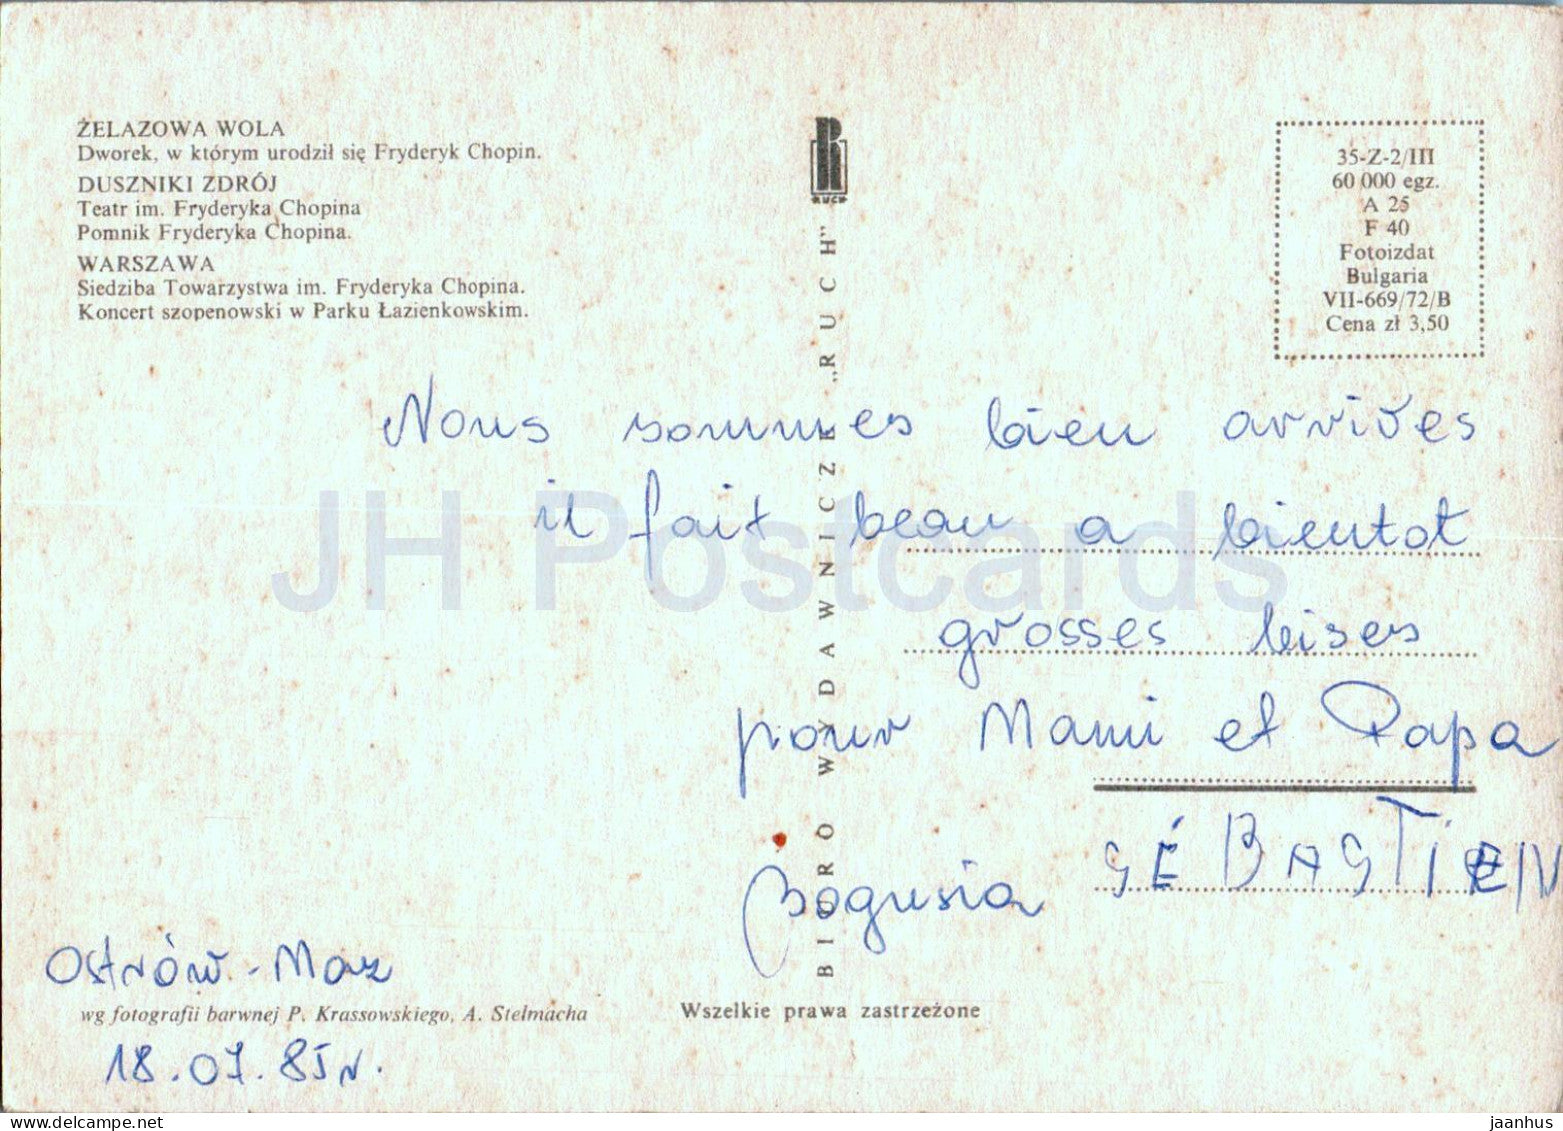 ŻELAZOWA WOLA
Dworek, w którym urodził się Fryderyk Chopin.
DUSZNIKI ZDRÓJ
Teatr im. Fryderyka Chopina
Pomnik Fryderyka Chopina.
WARSZAWA
Siedziba Towarzystwa im. Fryderyka Chopina.
Koncert szopenowski w Parku Łazienkowskim.
RUCH
BIURO WYDAWNICZE „RUCH”
35-Z-2/III
60 000 egz.
A 25
F 40
Fotoizdat
Bulgaria
VII-669/72/B
Cena zł 3,50
Nous sommes bien arrivés
il fait beau a bientot
grosses bises
pour Mami et Papa
Bogusia SÉBASTIEN
Ostrów-Maz
wg fotografii barwnej P. Krassowskiego, A. Stelmacha
18.07.85r.
Wszelkie prawa zastrzeżone
JH Postcards
jaanhus
delcampe.net